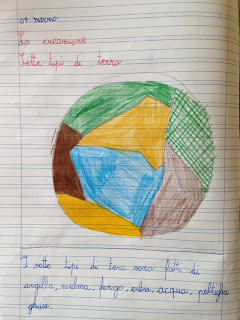 07 marzo
La creazione
Sette tipi di terra
I sette tipi di terra sono fatti di
argilla, melma, fango, erba, acqua, poltiglia
ghiaia.